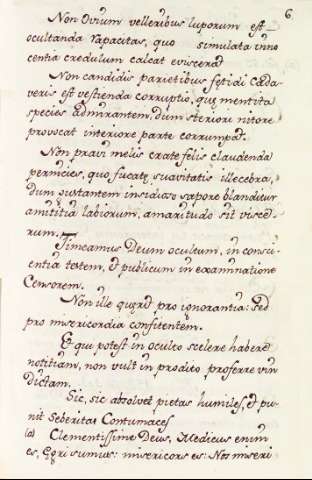 6
Non Ovium velleribus luporum est
ocultanda rapacitas, quo simulata inno
centia credulum calcat eviscerad
Non candidis parietibus fętidi Cada
veris est vestienda corruptio, quę mentita
species admirantem, dum exteriori nitore
provocat interiore parte corrumpat.
Non pravi melis crate felis claudenda
permicies, quo fucatę suavitatis illecebra,
dum gustantem insidioso sapore blanditur
amititia labiorum, amaritudo sit visce-
rum.
Timeamus Deum ocultum, in consci-
entia testem, et publicum in examinatione
Censorem.
Non ille quęrit pro ignorantia: Sed
pro misericordia confitentem.
Et qui potest in oculto scelere habere
notitiam, non vult in prodito proferre vin
Dictam.
Sic, sic absolvet pietas humiles, et pu-
nit Seberitas Contumaces
(a) Clementissime Deus, Medicus enim
es, Ęgri sumus: misericors es: Nos miseri